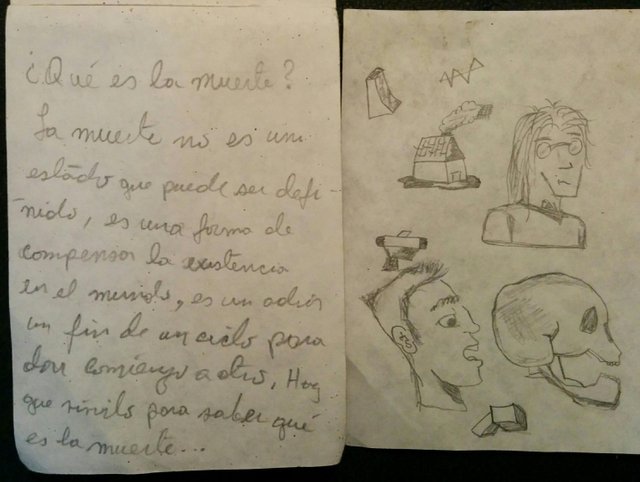 ¿Qué es la muerte?
La muerte no es un
estado que puede ser defi-
nido, es una forma de
compensar la existencia
en el mundo, es un adios
un fin de un ciclo para
dar comienzo a otro, Hay
que vivilo para saber qué
es la muerte...